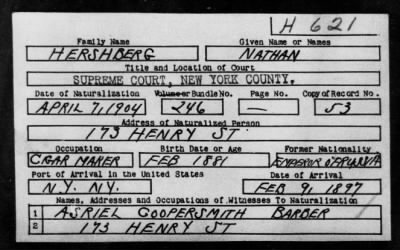 H 621
Family Name Given Name or Names
HERSHBERG NATHAN
Title and Location of Court
SUPREME COURT, NEW YORK COUNTY.
Date of Naturalization Volume or Bundle No. Page No. Copy of Record No.
APRIL 7, 1904 246 — 53
Address of Naturalized Person
173 HENRY ST
Occupation Birth Date or Age Former Nationality
CIGAR MAKER FEB 1881 EMPEROR OF RUSSIA
Port of Arrival in the United States Date of Arrival
N.Y. N.Y. FEB 9, 1897
Names, Addresses and Occupations of Witnesses To Naturalization
1 ASRIEL COOPERSMITH BARBER
2 173 HENRY ST